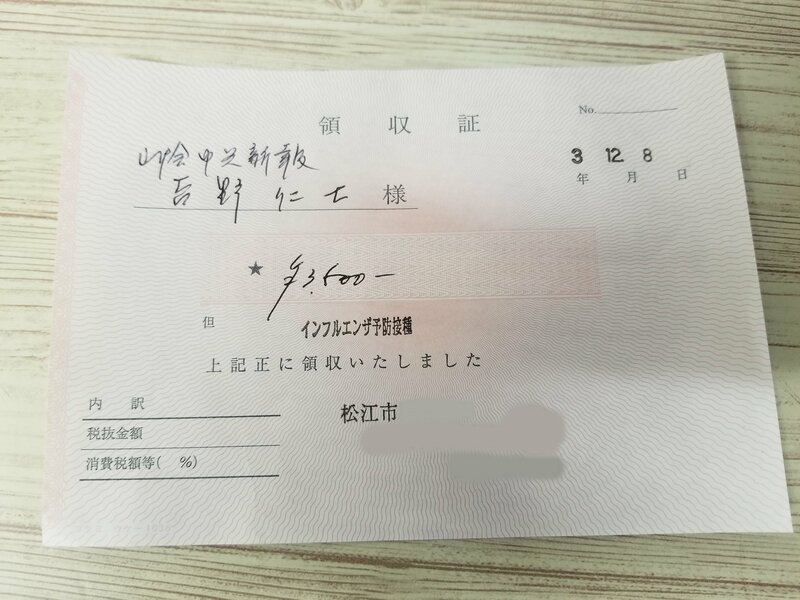 領収証
No.
山陰中央新報
3 12 8
年 月 日
吉野仁士 様
★ ¥3,500-
但 インフルエンザ予防接種
上記正に領収いたしました
内訳
税抜金額
消費税額等( %)
松江市